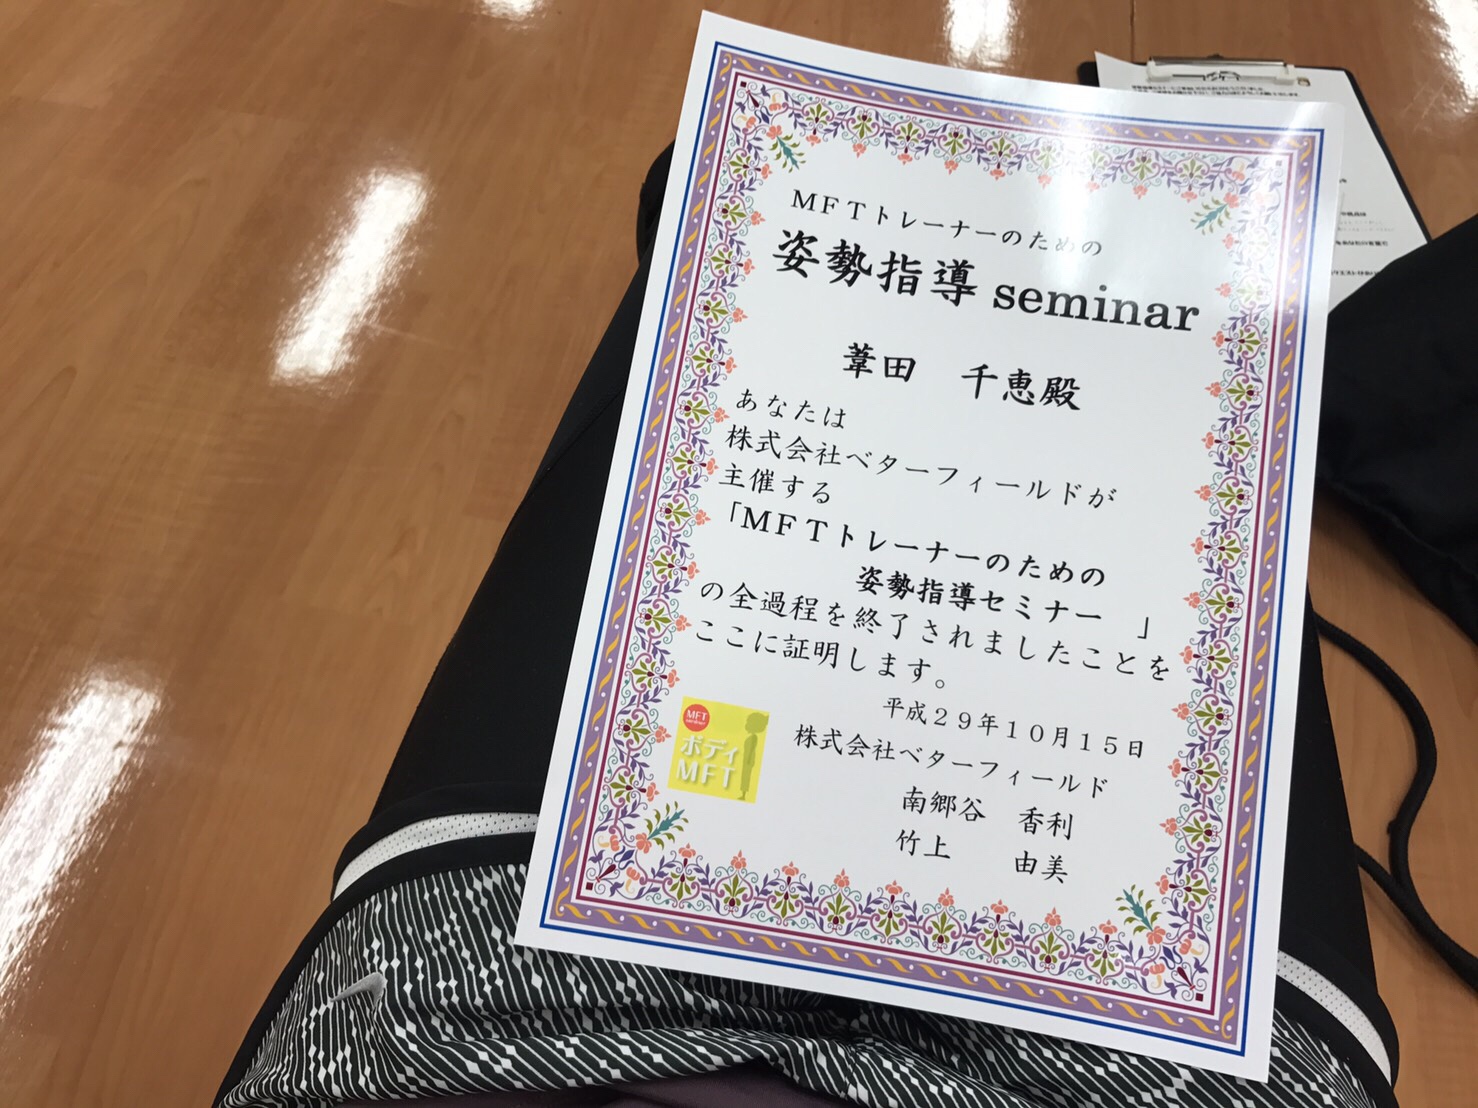 MFTトレーナーのための
姿勢指導 seminar
葦田　千恵殿
あなたは
株式会社ベターフィールドが
主催する
「MFTトレーナーのための
姿勢指導セミナー　」
の全過程を終了されましたことを
ここに証明します。
平成29年10月15日
株式会社ベターフィールド
南郷谷　香利
竹上　由美
MFT
ボディ
MFT